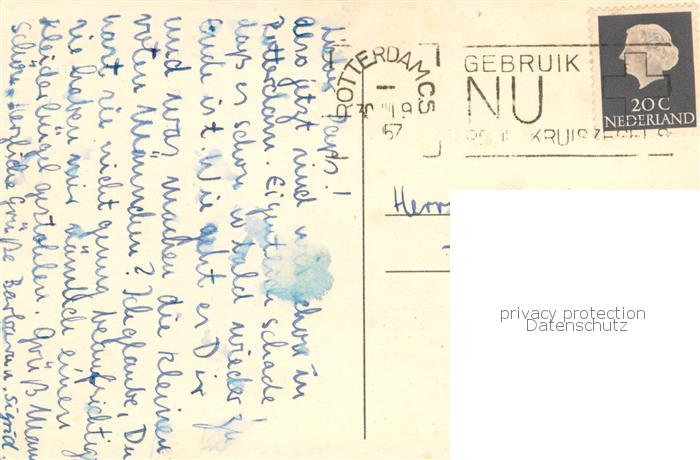 Lieber Paps!
also jetzt sind wir schon in
Rotterdam. Eigentlich schade
daß es schon so bald wieder zu
Ende ist. Wie geht es Dir
und was machen die kleinen
roten Männchen? Ich glaube, Du
hast sie nicht genug beaufsichtigt
sie haben mir nämlich einen
Kleiderbügel gestohlen. Grüß Mami
schön. Herzliche Grüße Barbara u. Sigrid.
ROTTERDAM CS
67
GEBRUIK
NU
KRUISZEGELS
20 C
NEDERLAND
Herrn
privacy protection
Datenschutz